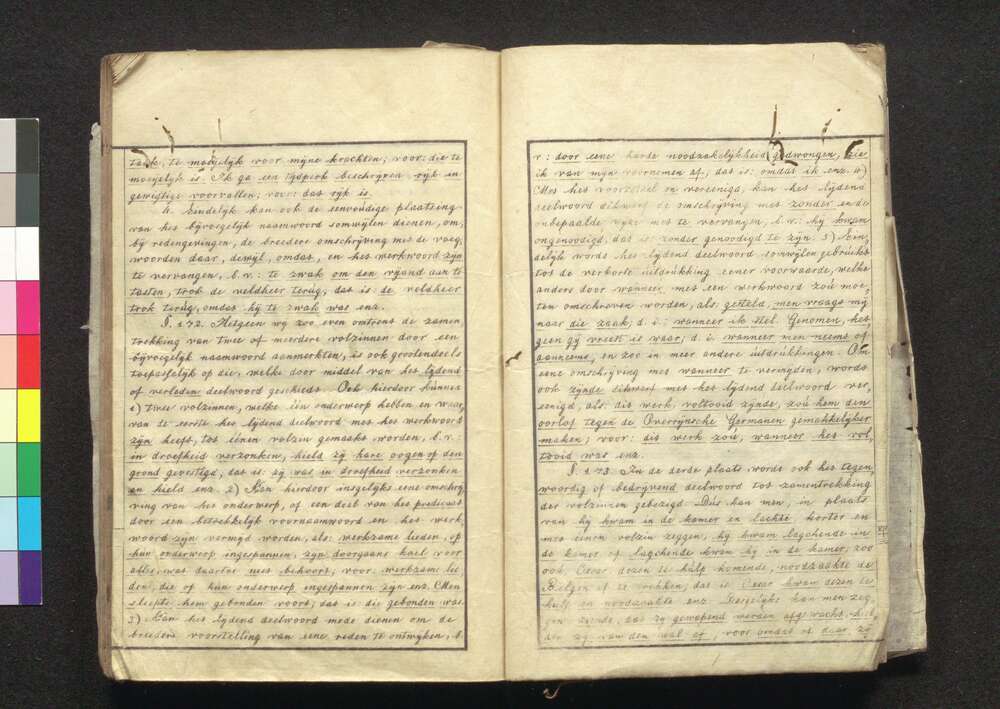 taak, te moeyelyk voor myne krachten; voor: die te
moeyelyk is. Ik ga een tydperk beschryven ryk in
gewigtige voorvallen; voor: dat ryk is.
4. Eindelyk kan ook de eenvoudige plaatsing
van het byvoegelyk naamwoord somwylen dienen, om,
by redengevingen, de breedere omschryving met de voeg,
woorden daar, dewyl, omdat, en het werkwoord zyn
te vervangen, b.v.: te zwak om den vyand aan te
tasten, trok de veldheer terug, dat is: de veldheer
trok terug, omdat hy te zwak was enz.
§. 172. Hetgeen wy zoo even omtrent de zamen
trekking van twee of meerdere volzinnen door een
byvoegelyk naamwoord aanmerkten, is ook grootendeels
toepasselyk op die, welke door middel van het lydend
of verleden deelwoord geschiedt. Ook hierdoor kunnen
1) twee volzinnen, welke één onderwerp hebben en waar,
van de eerste het lydend deelwoord met het werkwoord
zyn heeft, tot éénen volzin gemaakt worden, b.v.:
in droefheid verzonken, hield zy hare oogen op den
grond gevestigd; dat is: zy was in droefheid verzonken
en hield enz. 2) Kan hierdoor insgelyks eene omschry
ving van het onderwerp, of een deel van het predicaat
door een betrekkelyk voornaamwoord en het werk,
woord zyn vermyd worden, als: werkzame lieden, op
hun onderwerp ingespannen, zyn doorgaans kael voor
alles, wat daartoe niet behoort; voor: werkzame lie
den, die op hun onderwerp ingespannen zyn enz. Men
sleepte hem gebonden voort; dat is: die gebonden was.
3) Kan het lydend deelwoord mede dienen om de
breedere voorstelling van eene reden te ontwyken, b.
v.: door eene harde noodzakelykheid gedwongen, zie
ik van myn voornemen af, dat is: omdat ik enz. 4)
Met het voorzetsel on vereenigd, kan het lydend
deelwoord dikwerf de omschryving met zonder en de
onbepaalde wyze met te vervangen, b.v.: hy kwam
ongenoodigd, dat is: zonder genoodigd te zyn. 5) Ein,
delyk wordt het lydend deelwoord somwylen gebruikt
tot de verkorte uitdrukking eener voorwaarde, welke
anders door wanneer met een werkwoord zou moe,
ten omschreven worden, als: gesteld, men vraagt my
naar die zaak, d. i.: wanneer ik stel. Genomen, het,
geen gy vreest is waar; d. i. wanneer men neemt of
aanneemt, en zoo in meer andere uitdrukkingen. Om
eene omschryving met wanneer te vermyden, wordt
ook zynde dikwerf met het lydend deelwoord ver,
eenigd, als: dit werk, voltooid zynde, zou hem den
oorlog tegen de Overrynsche Germanen gemakkelyker
maken; voor: dit werk zou, wanneer het vol,
tooid was enz.
§. 173. In de derde plaats wordt ook het tegen,
woordig of bedryvend deelwoord tot zamentrekking
der volzinnen gebezigd. Dus kan men, in plaats
van hy kwam in de kamer en lachte korter en
met éénen volzin zeggen, hy kwam lagchende in
de kamer of lagchende kwam hy in de kamer; zoo
ook, Cesar dezen te hulp komende, noodzaakte de
Belgen af te trekken, dat is Cesar kwam dezen te
hulp en noodzaakte enz. Desgelyks kan men zeg,
gen ziende, dat zy gewapend werden afgewacht, hiel,
den zy van den wal af, voor omdat of daar zy